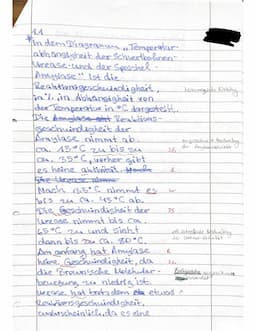 1.1
In dem Diagramm „Temperatur-
abhängigkeit der Schwertbohnen-
Urease und der Speichel-
Amylase" ist die
Reaktionsgeschwindigkeit,
in %, in Abhängigkeit von
der Temperatur in °C dargestellt.
Die Amylase Reaktions-
geschwindigkeit der
Amylase nimmt ab
ca. 15°C zu bis zu
ca. 35°C, vorher gibt
es keine aktivität.
Nach 35°C nimmt es
bis zu ca. 45°C ab.
Die Geschwindigkeit der
Urease nimmt bis ca.
65°C zu und sinkt
dann bis zu ca. 80°C.
Am anfang hat Amylase
keine Geschwindigkeit, da
die Brownsche Molekular-
bewegung zu niedrig ist.
Urease hat trotzdem etwas
Reaktionsgeschwindigkeit,
wahrscheinlich da es eine